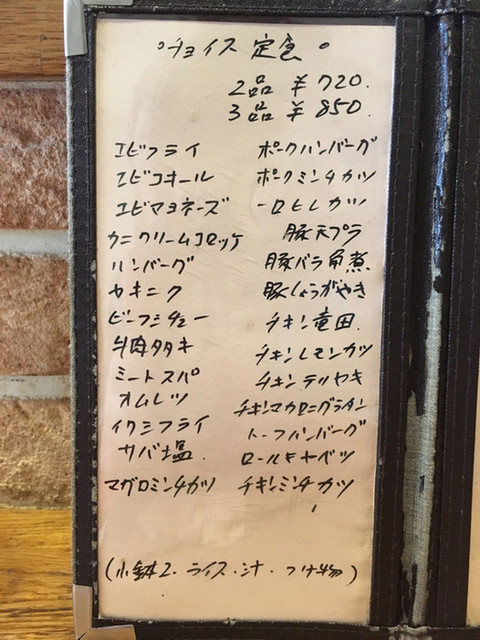 °チョイス 定食 °
2品 ¥720.
3品 ¥850.
エビフライ
エビコキール
エビマヨネーズ
カニクリームコロッケ
ハンバーグ
ヤキニク
ビーフシチュー
牛肉タタキ
ミートスパ
オムレツ
イワシフライ
サバ塩.
マグロミンチカツ
ポークハンバーグ
ポークミンチカツ
一口ヒレカツ
豚天プラ
豚バラ角煮
豚しょうがやき
チキン竜田.
チキンレモンカツ
チキンテリヤキ
チキンマカロニグラタン
トーフハンバーグ
ロールキャベツ
チキンミンチカツ
(小鉢2・ライス・汁・つけ物)